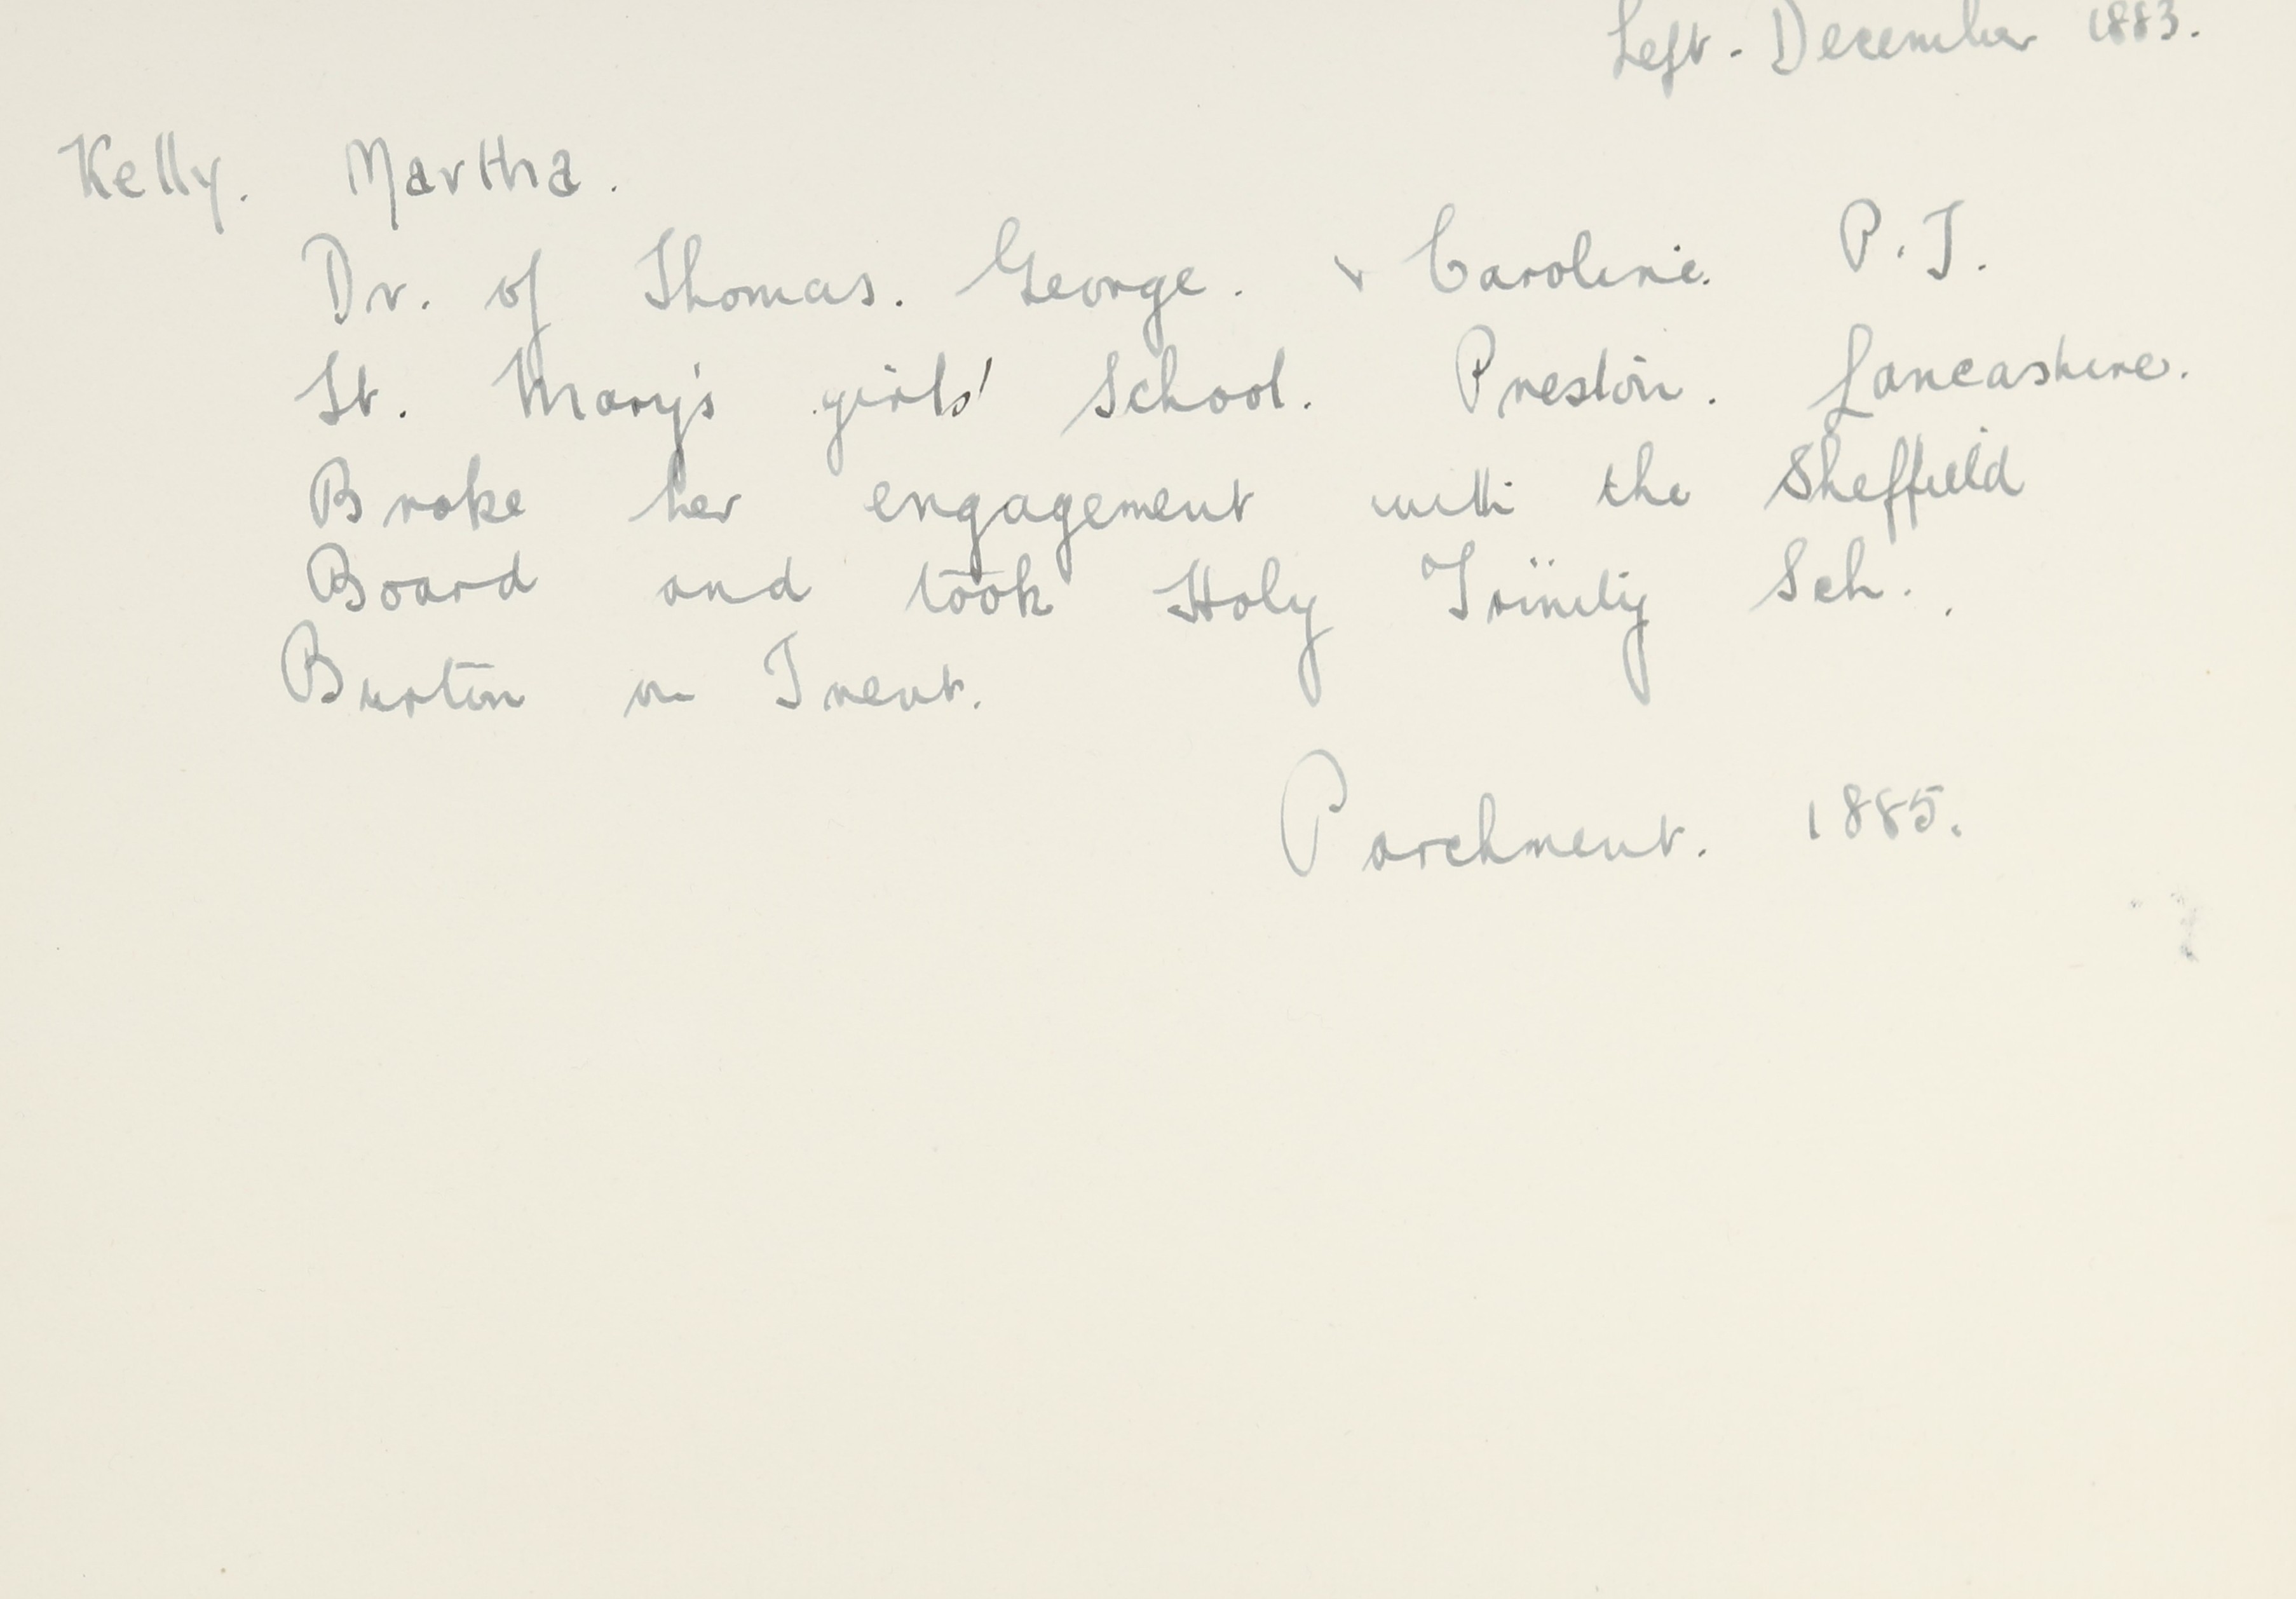 Left - December 1883.
Kelly. Martha.
Dr. of Thomas. George. & Caroline. P.T.
St. Mary's girls' School. Preston. Lancashire.
Broke her engagement with the Sheffield
Board and took Holy Trinity Sch..
Burton on Trent.
Parchment. 1885.